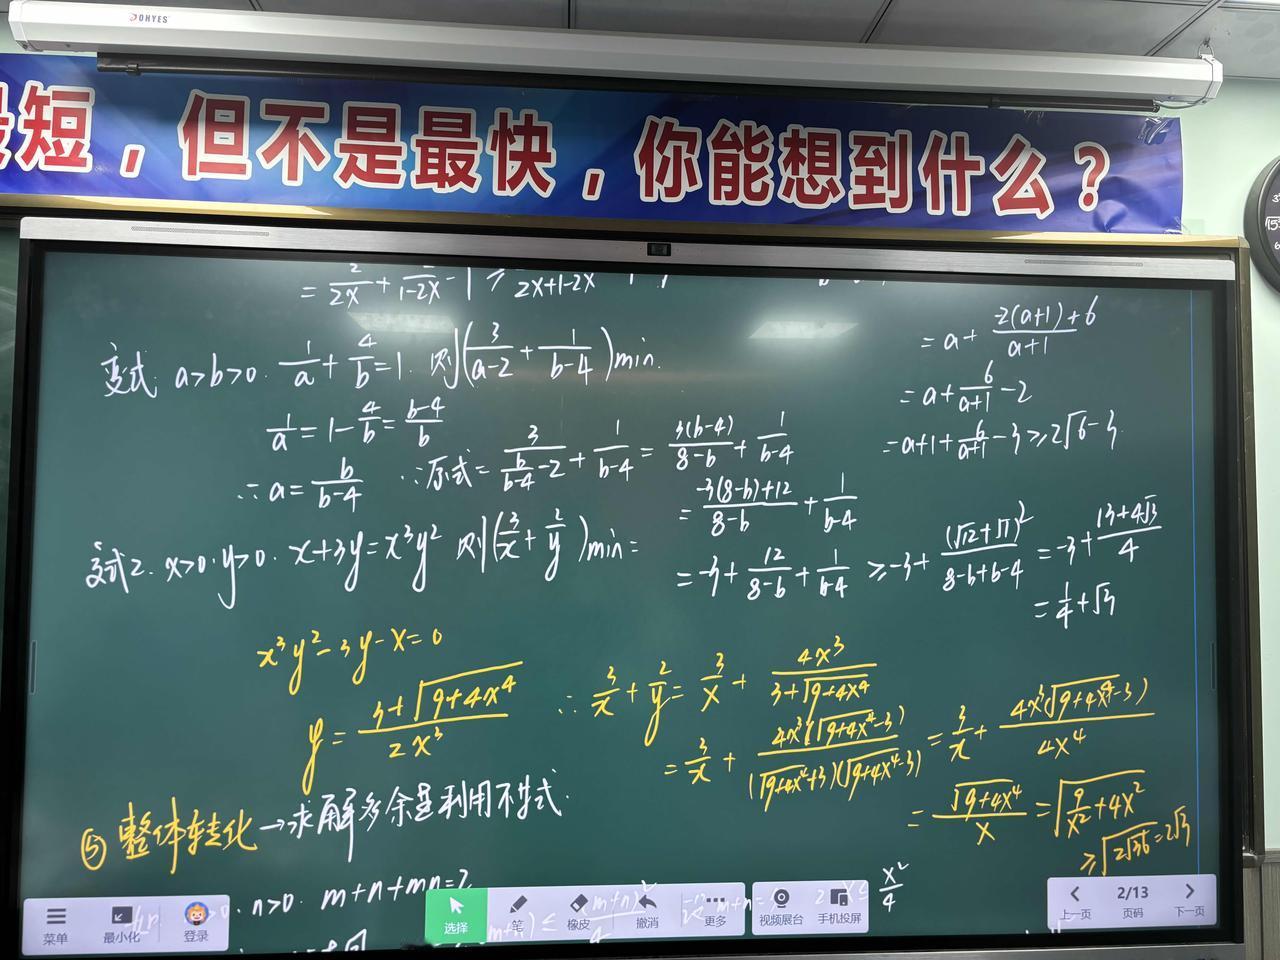 DHYES
短，但不是最快，你能想到什么？
= 2/2X + /1-2X - 1 ≥ /2X+1-2X
变式 a>b>0. 1/a + 4/b = 1. 则(3/(a-2) + 1/(b-4))min.
1/a = 1 - 4/b = (b-4)/b
∴ a = b/(b-4) ∴原式 = 3/(b/(b-4) - 2) + 1/(b-4) = 3(b-4)/(8-b) + 1/(b-4)
= (-3(8-b)+12)/(8-b) + 1/(b-4)
= -3 + 12/(8-b) + 1/(b-4) ≥ -3 + (√12+√1)²/(8-b+b-4) = -3 + (13+4√3)/4
= 1/4 + √3
= a + (2(a+1)+6)/(a+1)
= a + 6/(a+1) - 2
= a+1 + 6/(a+1) - 3 ≥ 2√6 - 3
变式2. x>0. y>0. x+3y = x³y² 则(3/x + 2/y)min =
x³y² - 3y - x = 0
y = (3+√(9+4x⁴))/(2x³)
∴ 3/x + 2/y = 3/x + 4x³/(3+√(9+4x⁴))
= 3/x + 4x³(√(9+4x⁴)-3)/((√(9+4x⁴)+3)(√(9+4x⁴)-3)) = 3/x + 4x³(√(9+4x⁴)-3)/(4x⁴)
= √(9+4x⁴)/x = √(9/x² + 4x²)
≥ √(2√36) = 2√3
⑤ 整体转化→求解多余是利用不等式.
n>0. m+n+mn=2
(m+n)²/4
x²/4
菜单
最小化
登录
选择
笔
橡皮
撤消
更多
视频展台
手机投屏
上一页
2/13
页码
下一页